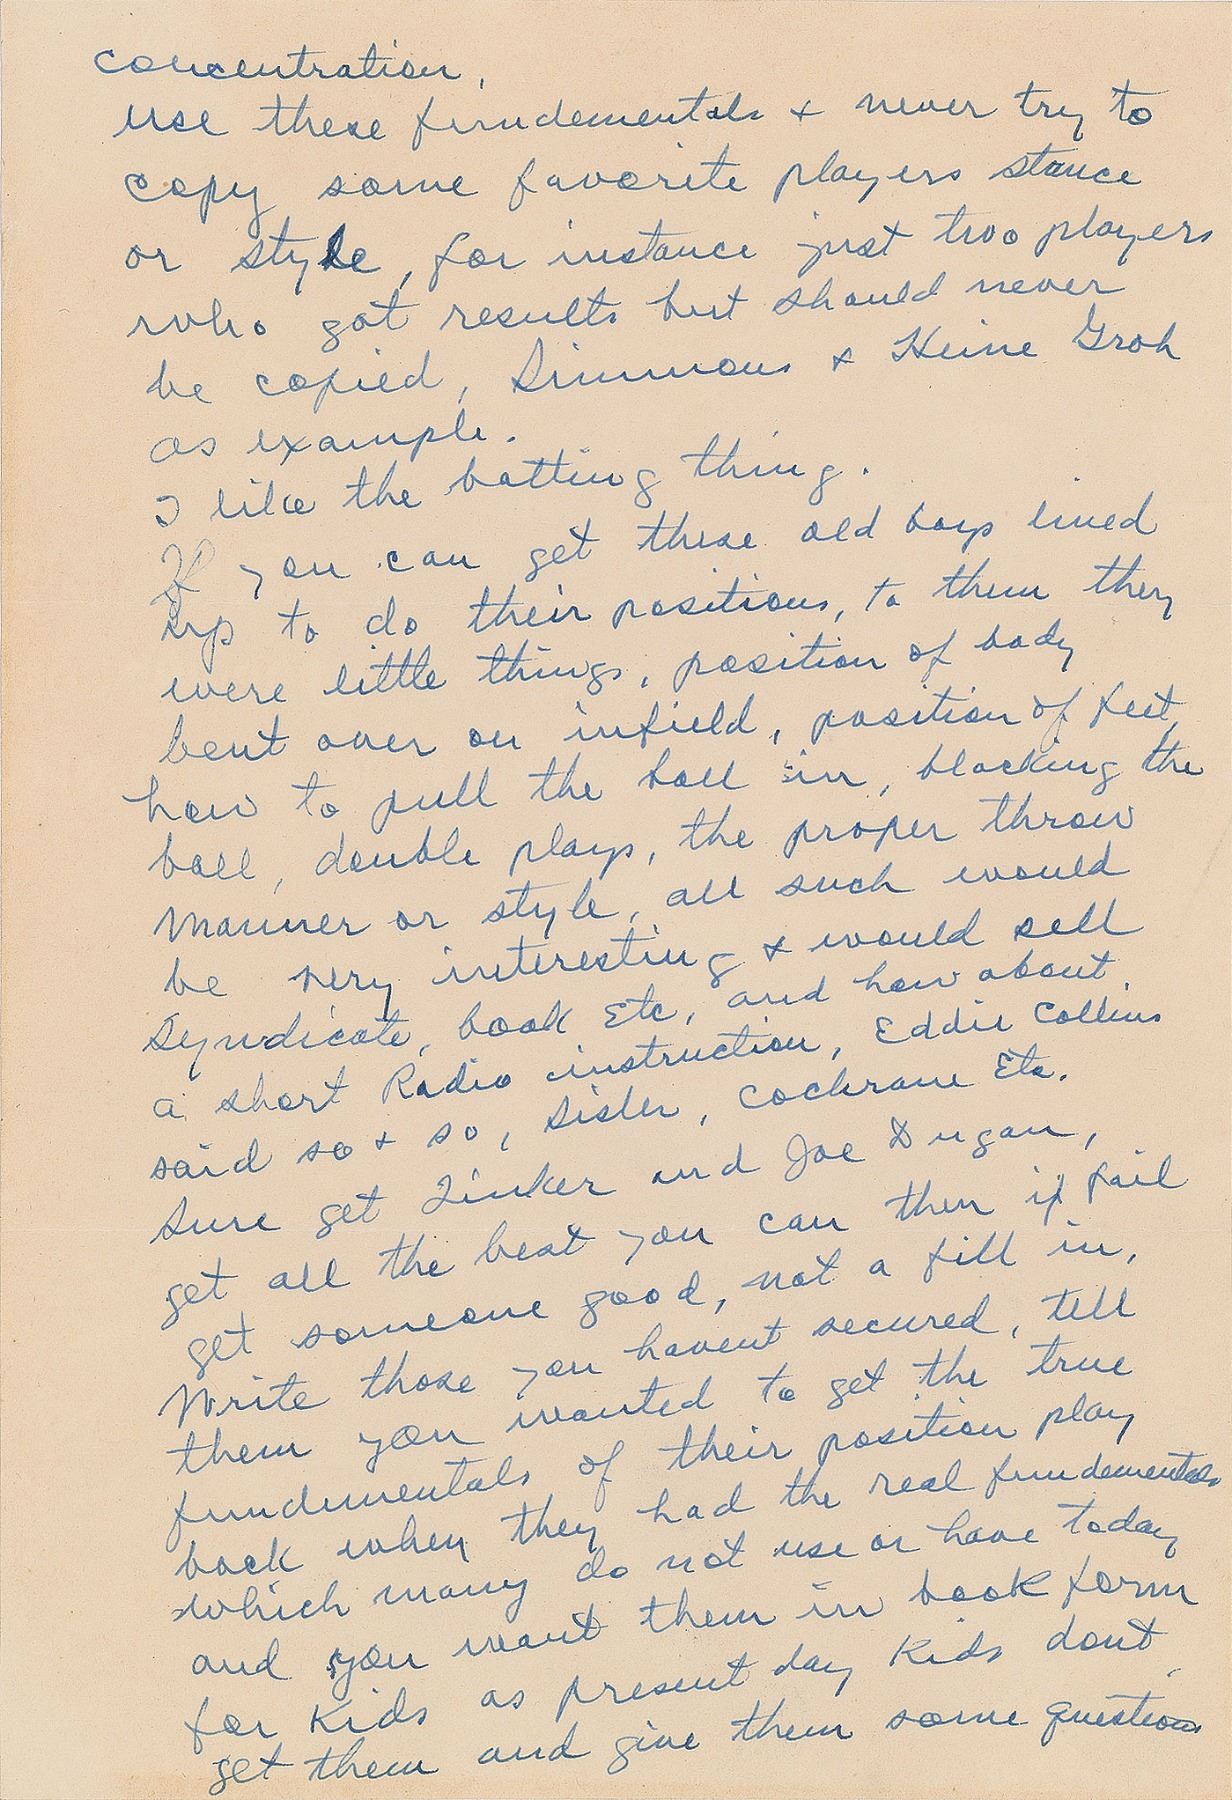 concentration.
use these fundementals + never try to
copy some favorite players stance
or style, for instance just two players
who got results but should never
be copied, Simmons + Heine Groh
as example.
I like the batting thing.
If you can get these old boys lined
up to do their positions, to them they
were little things, position of body
bent over on infield, position of feet,
how to pull the ball in, blocking the
ball, double plays, the proper throw
manner or style, all such would
be very interesting & would sell
syndicate, book Etc, and how about
a short Radio instruction, Eddie Collins
said so + so, Sisler, Cochrane Etc.
Sure get Tinker and Joe Dugan,
get all the best you can then if fail
get someone good, not a fill in,
Write those you havent secured, tell
them you wanted to get the true
fundimentals of their position play
back when they had the real fundementals
which many do not use or have today
and you want them in book form
for Kids as present day Kids dont
get them and give them some questions